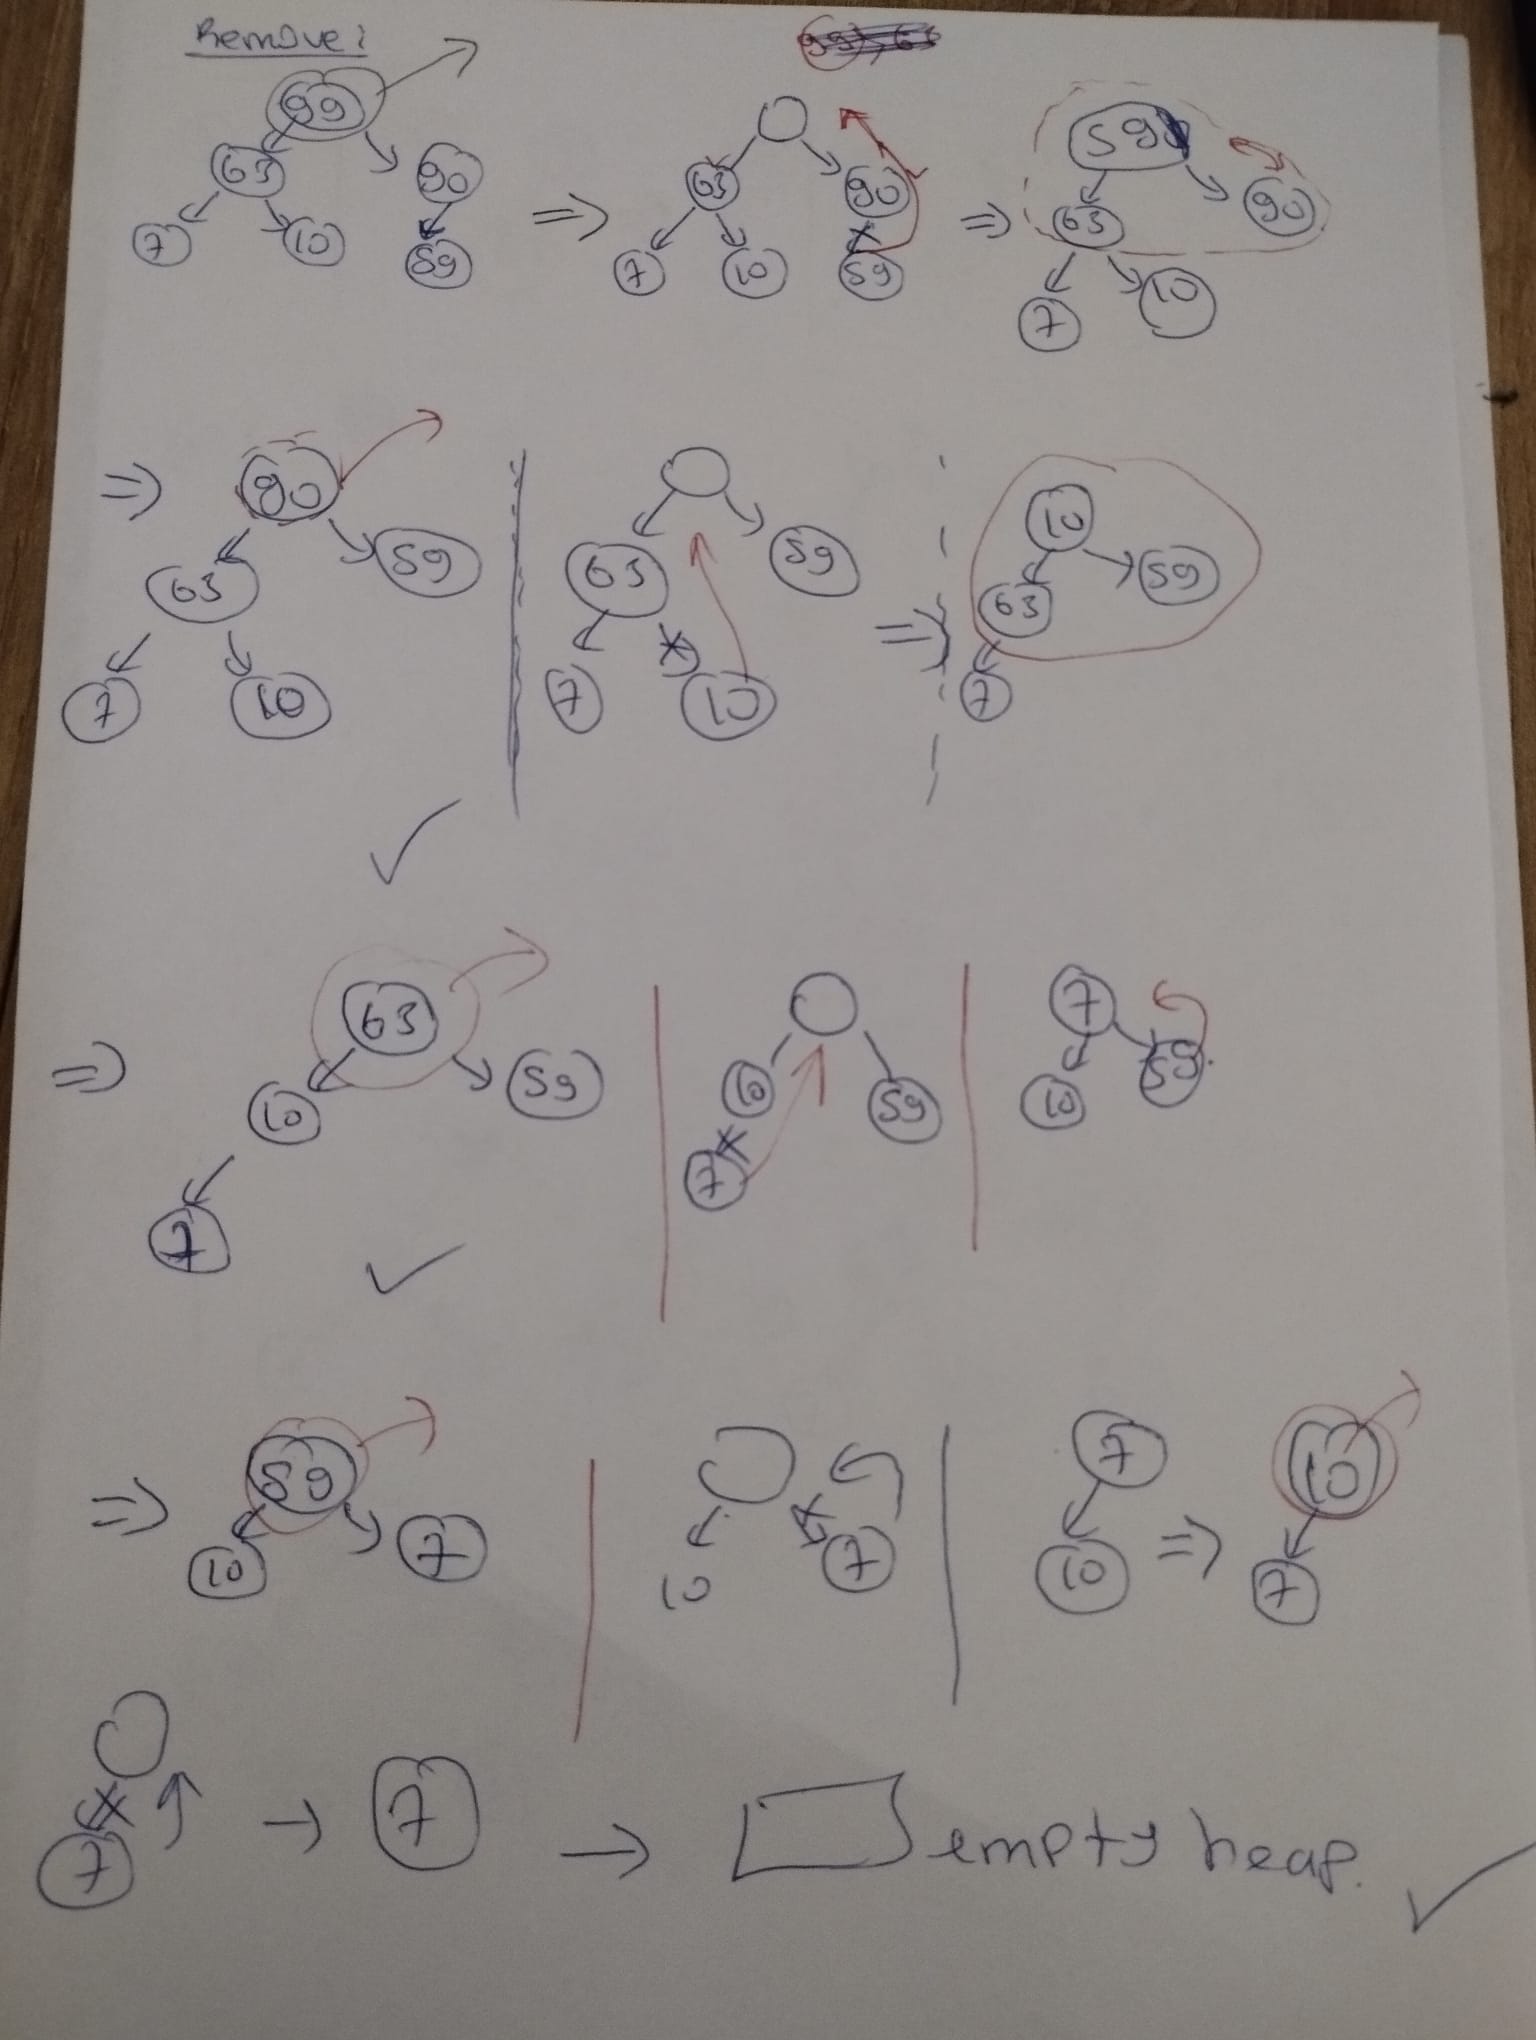 Remove:
99
63 90
7 10 59
⇒
63 90
7 10 59
⇒
59
63 90
7 10
⇒
90
63 59
7 10
63 59
7 10
⇒
10
63 59
7
✓
⇒
63
10 59
7
10 59
7
7
10 59
✓
⇒
59
10 7
10 7
7
10
⇒
10
7
7 → 7 → empty heap. ✓